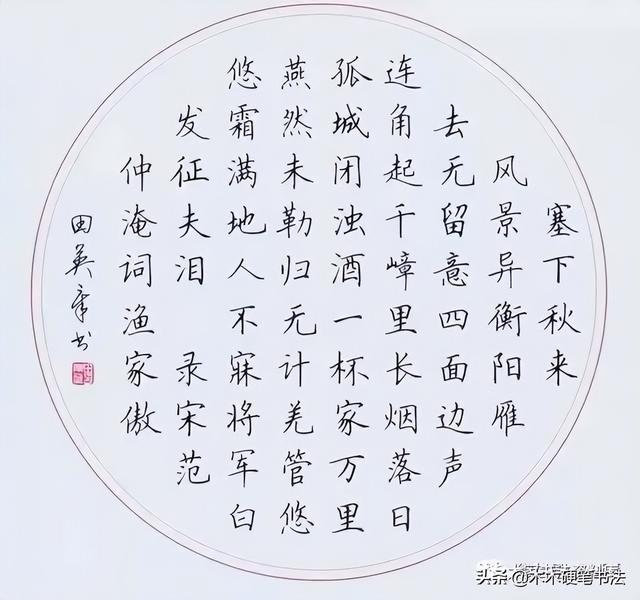 塞下秋来
风景异衡阳雁
去无留意四面边声
连角起千嶂里长烟落日
孤城闭浊酒一杯家万里
燕然未勒归无计羌管悠
悠霜满地人不寐将军白
发征夫泪 录宋范
仲淹词渔家傲
田英章书
头条@木木硬笔书法